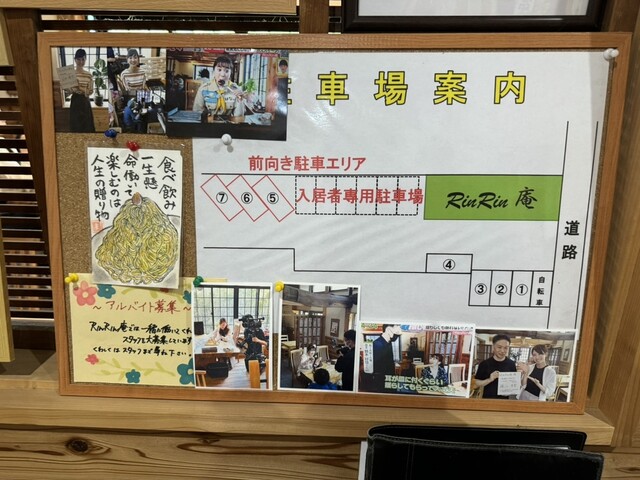 車場案内
前向き駐車エリア
⑦ ⑥ ⑤
入居者専用駐車場
RinRin 庵
道路
④
③ ② ①
自転車
食べ飲み
一生懸
命働いて
楽しむのは
人生の贈り物
~アルバイト募集~
RinRin庵では一緒に働いてくれ
スタッフを大募集しています
くわしくはスタッフまで尋ね下さい
耳が皿に付くぐらい